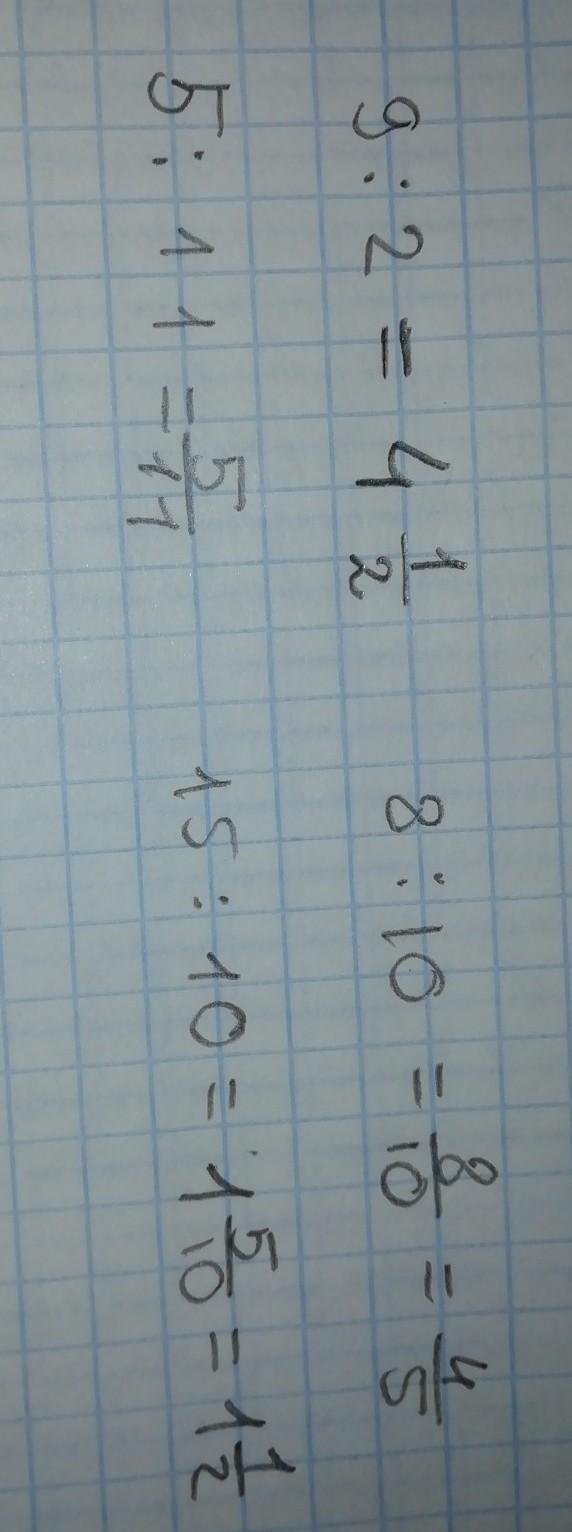 9 : 2 = 4 1/2    8 : 10 = 8/10 = 4/5
5 : 11 = 5/11    15 : 10 = 1 5/10 = 1 1/2